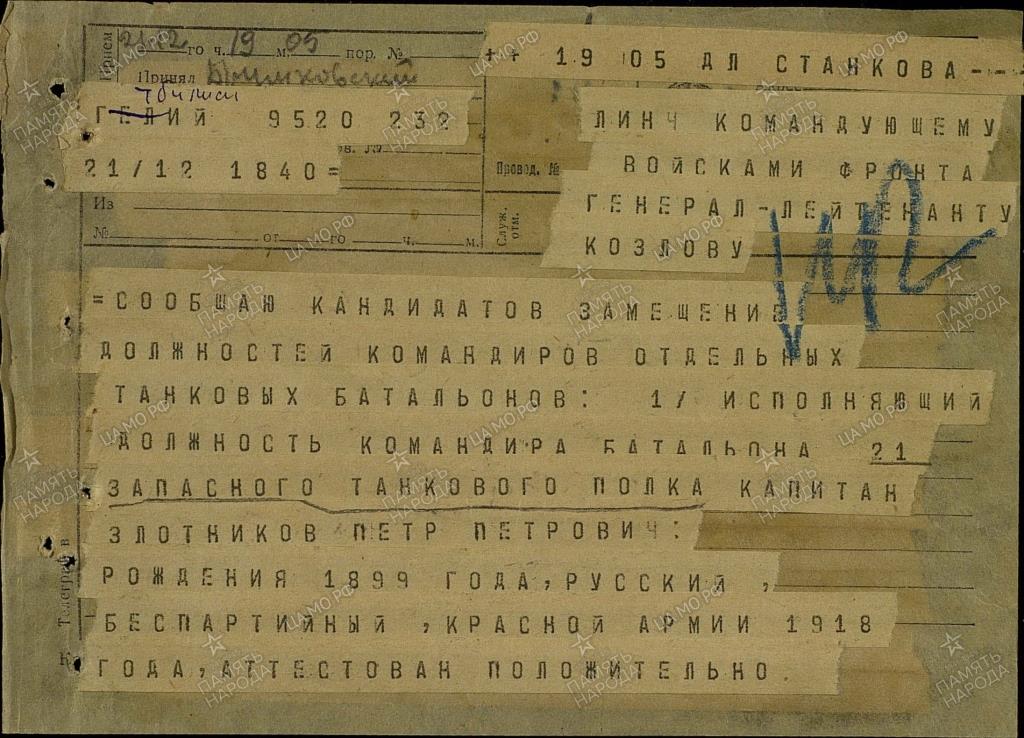 Прием
21.12 го ч. 19 м. 05 пор. №
Принял
ГЕЛИЙ 9520 232
21/12 1840=
Из
№ от го ч. м.
19 05 ДЛ СТАНКОВА---
ЛИНЧ КОМАНДУЮЩЕМУ
Провод. №
ВОЙСКАМИ ФРОНТА
ГЕНЕРАЛ-ЛЕЙТЕНАНТУ
Служ. отм.
КОЗЛОВУ
=СООБШАЮ КАНДИДАТОВ ЗАМЕЩЕНИЕ
ДОЛЖНОСТЕЙ КОМАНДИРОВ ОТДЕЛЬНЫХ
ТАНКОВЫХ БАТАЛЬОНОВ: 1/ ИСПОЛНЯЮЩИЙ
ДОЛЖНОСТЬ КОМАНДИРА БАТАЛЬОНА 21
ЗАПАСНОГО ТАНКОВОГО ПОЛКА КАПИТАН
ЗЛОТНИКОВ ПЕТР ПЕТРОВИЧ:
РОЖДЕНИЯ 1899 ГОДА, РУССКИЙ,
БЕСПАРТИЙНЫЙ, КРАСНОЙ АРМИИ 1918
ГОДА, АТТЕСТОВАН ПОЛОЖИТЕЛЬНО.
ПАМЯТЬ НАРОДА
ЦАМО РФ